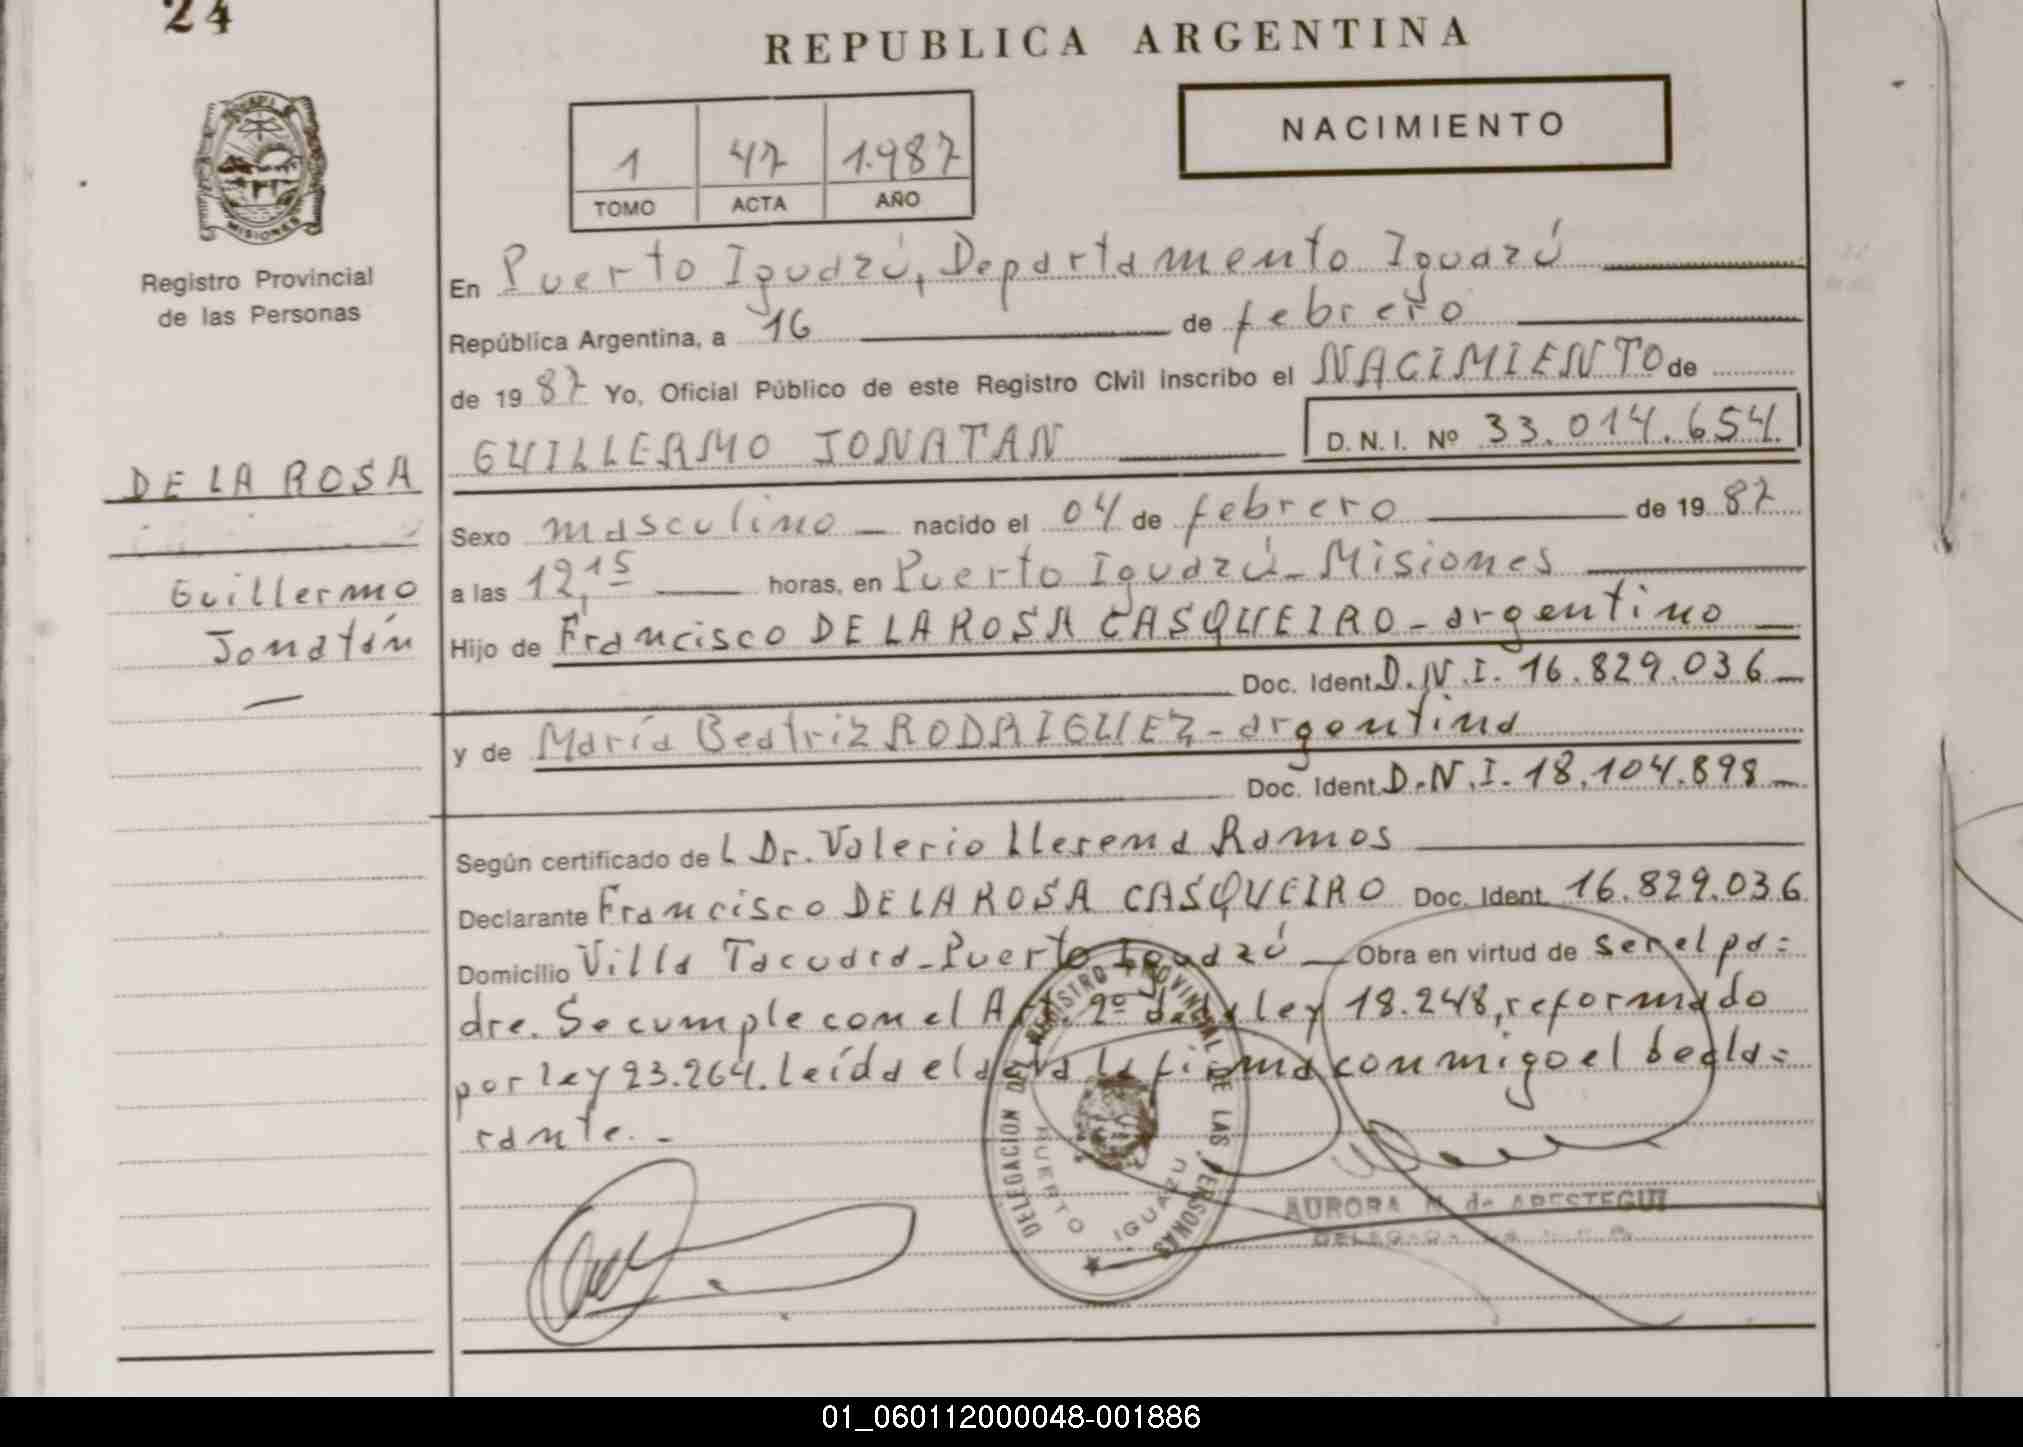 24
REPUBLICA ARGENTINA
NACIMIENTO
1 47 1.987
TOMO ACTA AÑO
MISIONES
Registro Provincial
de las Personas
DE LA ROSA
Guillermo
Jonatán
En Puerto Iguazú, Departamento Iguazú
República Argentina, a 16 de febrero
de 19 87 Yo, Oficial Público de este Registro Civil inscribo el NACIMIENTO de
GUILLERMO JONATAN D. N. I. Nº 33.014.654.
Sexo masculino nacido el 04 de febrero de 19 87
a las 12,15 horas, en Puerto Iguazú - Misiones
Hijo de Francisco DE LA ROSA CASQUEIRO - argentino
Doc. Ident. D.N.I. 16.829.036
y de María Beatriz RODRIGUEZ - argentina
Doc. Ident. D.N.I. 18.104.898
Según certificado de L Dr. Valerio Llerena Ramos
Declarante Francisco DE LA ROSA CASQUEIRO Doc. Ident. 16.829.036
Domicilio Villa Tacuara - Puerto Iguazú Obra en virtud de ser el pa=
dre. Se cumple con el Art. 2º de la ley 18.248, reformado
por ley 23.264. Leída el acta la firma conmigo el decla=
rante. -
DELEGACION DEL REGISTRO PROVINCIAL DE LAS PERSONAS
PUERTO IGUAZU
AURORA N. de ARESTEGUI
01_060112000048-001886